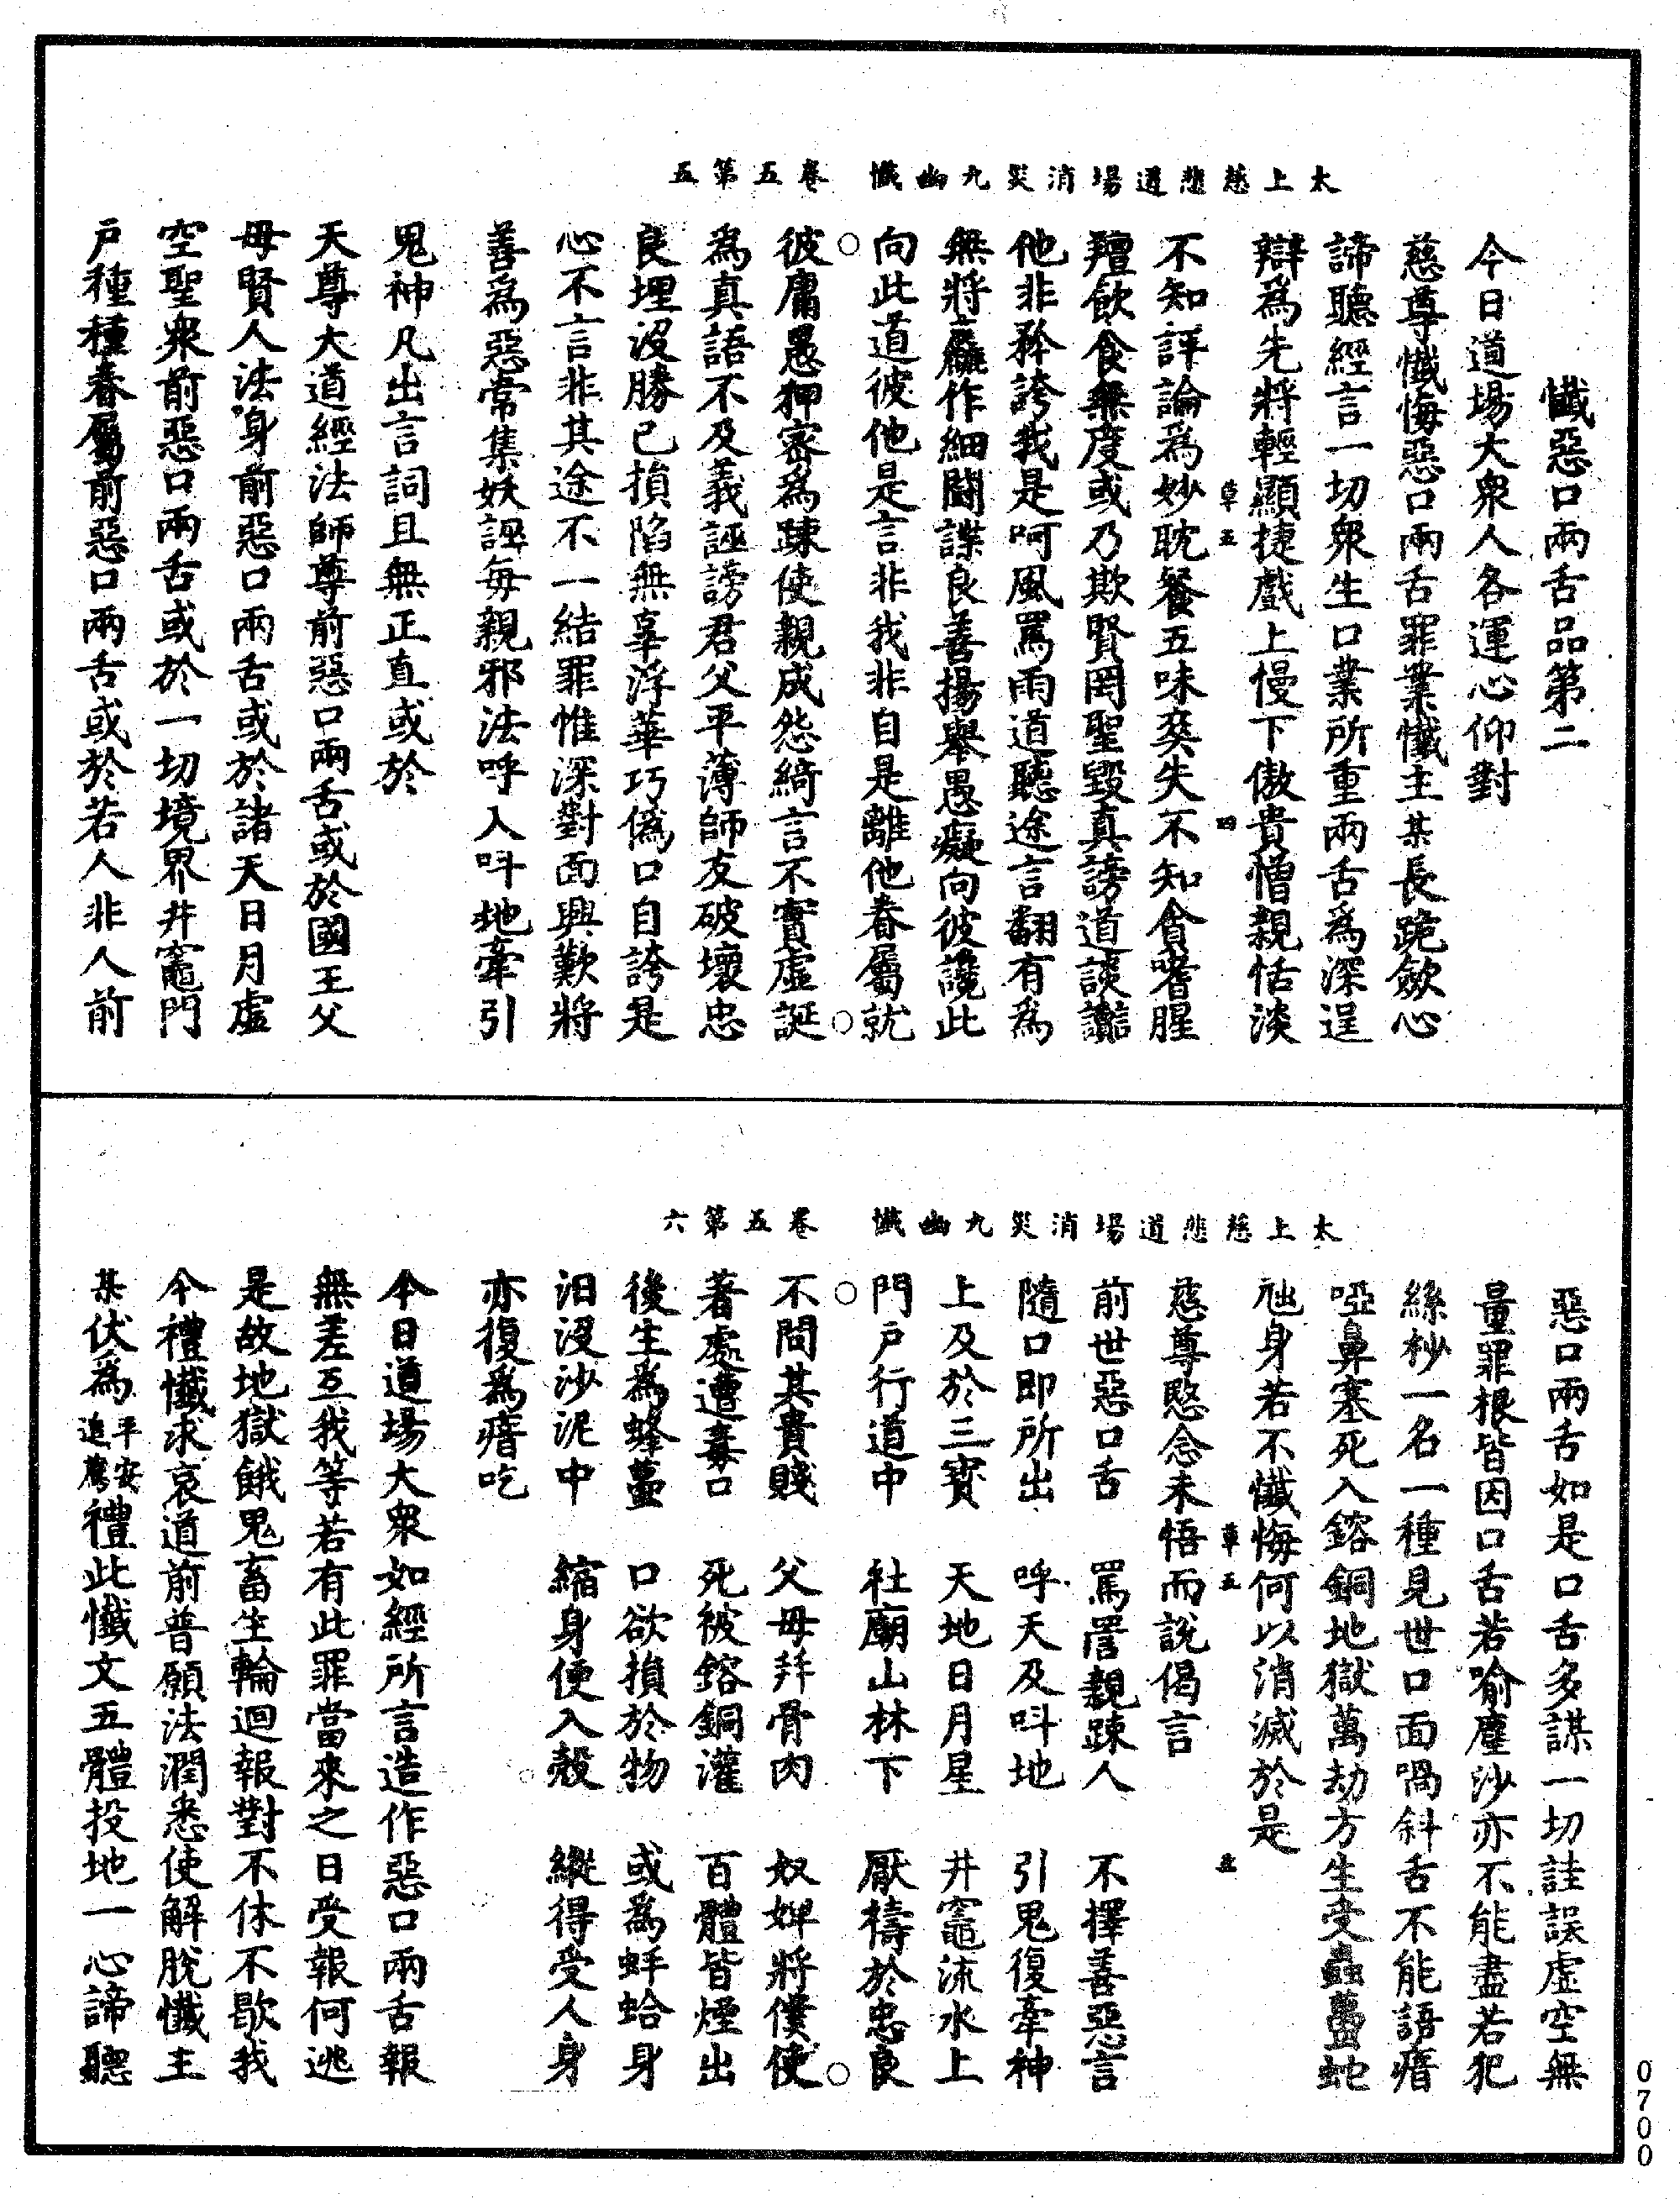 太上慈悲道場消災九幽懺　卷五第五
懺惡口兩舌品第二
今日道場大衆人各運心仰對
慈尊懺悔惡口兩舌罪業懺主某長跪斂心
諦聽經言一切衆生口業所重兩舌為深逞
辯為先將輕顯捷戲上慢下傲貴憎親恬淡
草五　四
不知評論為妙耽餐五味爽失不知貪嗜腥
羶飲食無度或乃欺賢罔聖毀真謗道談讟
他非矜誇我是呵風罵雨道聽途言翻有為
無將麤作細鬪諜良善揚舉愚癡向彼讒此
向此道彼他是言非我非自是離他眷屬就
彼庸愚狎密為踈使親成怨綺言不實虛誕
為真語不及義誣謗君父平薄師友破壞忠
良埋沒勝己損陷無辜浮華巧偽口自誇是
心不言非其途不一結罪惟深對面興歎將
善為惡常集妖誣每親邪法呼入呌地牽引
鬼神凡出言詞且無正直或於
天尊大道經法師尊前惡口兩舌或於國王父
母賢人法身前惡口兩舌或於諸天日月虛
空聖衆前惡口兩舌或於一切境界井竈門
戶種種眷屬前惡口兩舌或於若人非人前
太上慈悲道場消災九幽懺　卷五第六
惡口兩舌如是口舌多謀一切詿誤虛空無
量罪根皆因口舌若喻塵沙亦不能盡若犯
絲杪一名一種見世口面喎斜舌不能語瘖
啞鼻塞死入鎔銅地獄萬劫方生受蟲蠆蛇
虺身若不懺悔何以消滅於是
草五　五
慈尊愍念未悟而說偈言
前世惡口舌　罵詈親踈人　不擇善惡言
隨口即所出　呼天及呌地　引鬼復牽神
上及於三寶　天地日月星　井竈流水上
門戶行道中　社廟山林下　厭禱於忠良
不問其貴賤　父母幷骨肉　奴婢將僕使
著處遭毒口　死被鎔銅灌　百體皆煙出
後生為蜂蠆　口欲損於物　或為蚌蛤身
汨沒沙泥中　縮身便入殼　縱得受人身
亦復為瘖吃
今日道場大衆如經所言造作惡口兩舌報
無差互我等若有此罪當來之日受報何逃
是故地獄餓鬼畜生輪迴報對不休不歇我
今禮懺求哀道前普願法潤悉使解脫懺主
某伏為平安追薦禮此懺文五體投地一心諦聽
0700